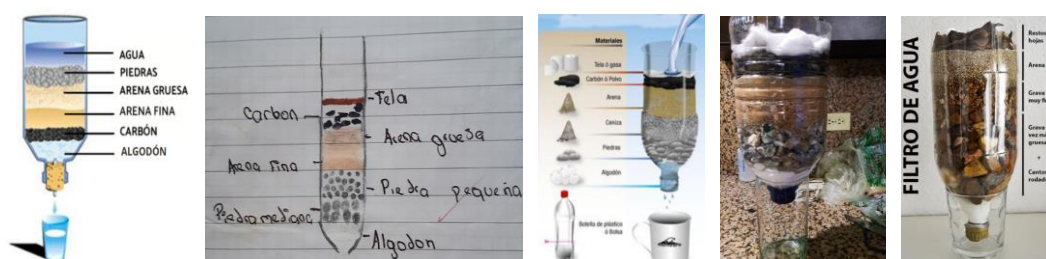 AGUA
PIEDRAS
ARENA GRUESA
ARENA FINA
CARBÓN
ALGODÓN
Tela
Carbon
Arena gruesa
Arena Fina
Piedra pequeña
Piedra mediana
Algodon
Materiales
Tela ó gasa
Carbón ó Polvo
Arena
Ceniza
Piedras
Algodón
Botella de plástico
ó Bolsa
FILTRO DE AGUA
Restos
hojas
Arena
Grava
muy fi
Grava
vez m
gruesa
+
Cantos
rodado